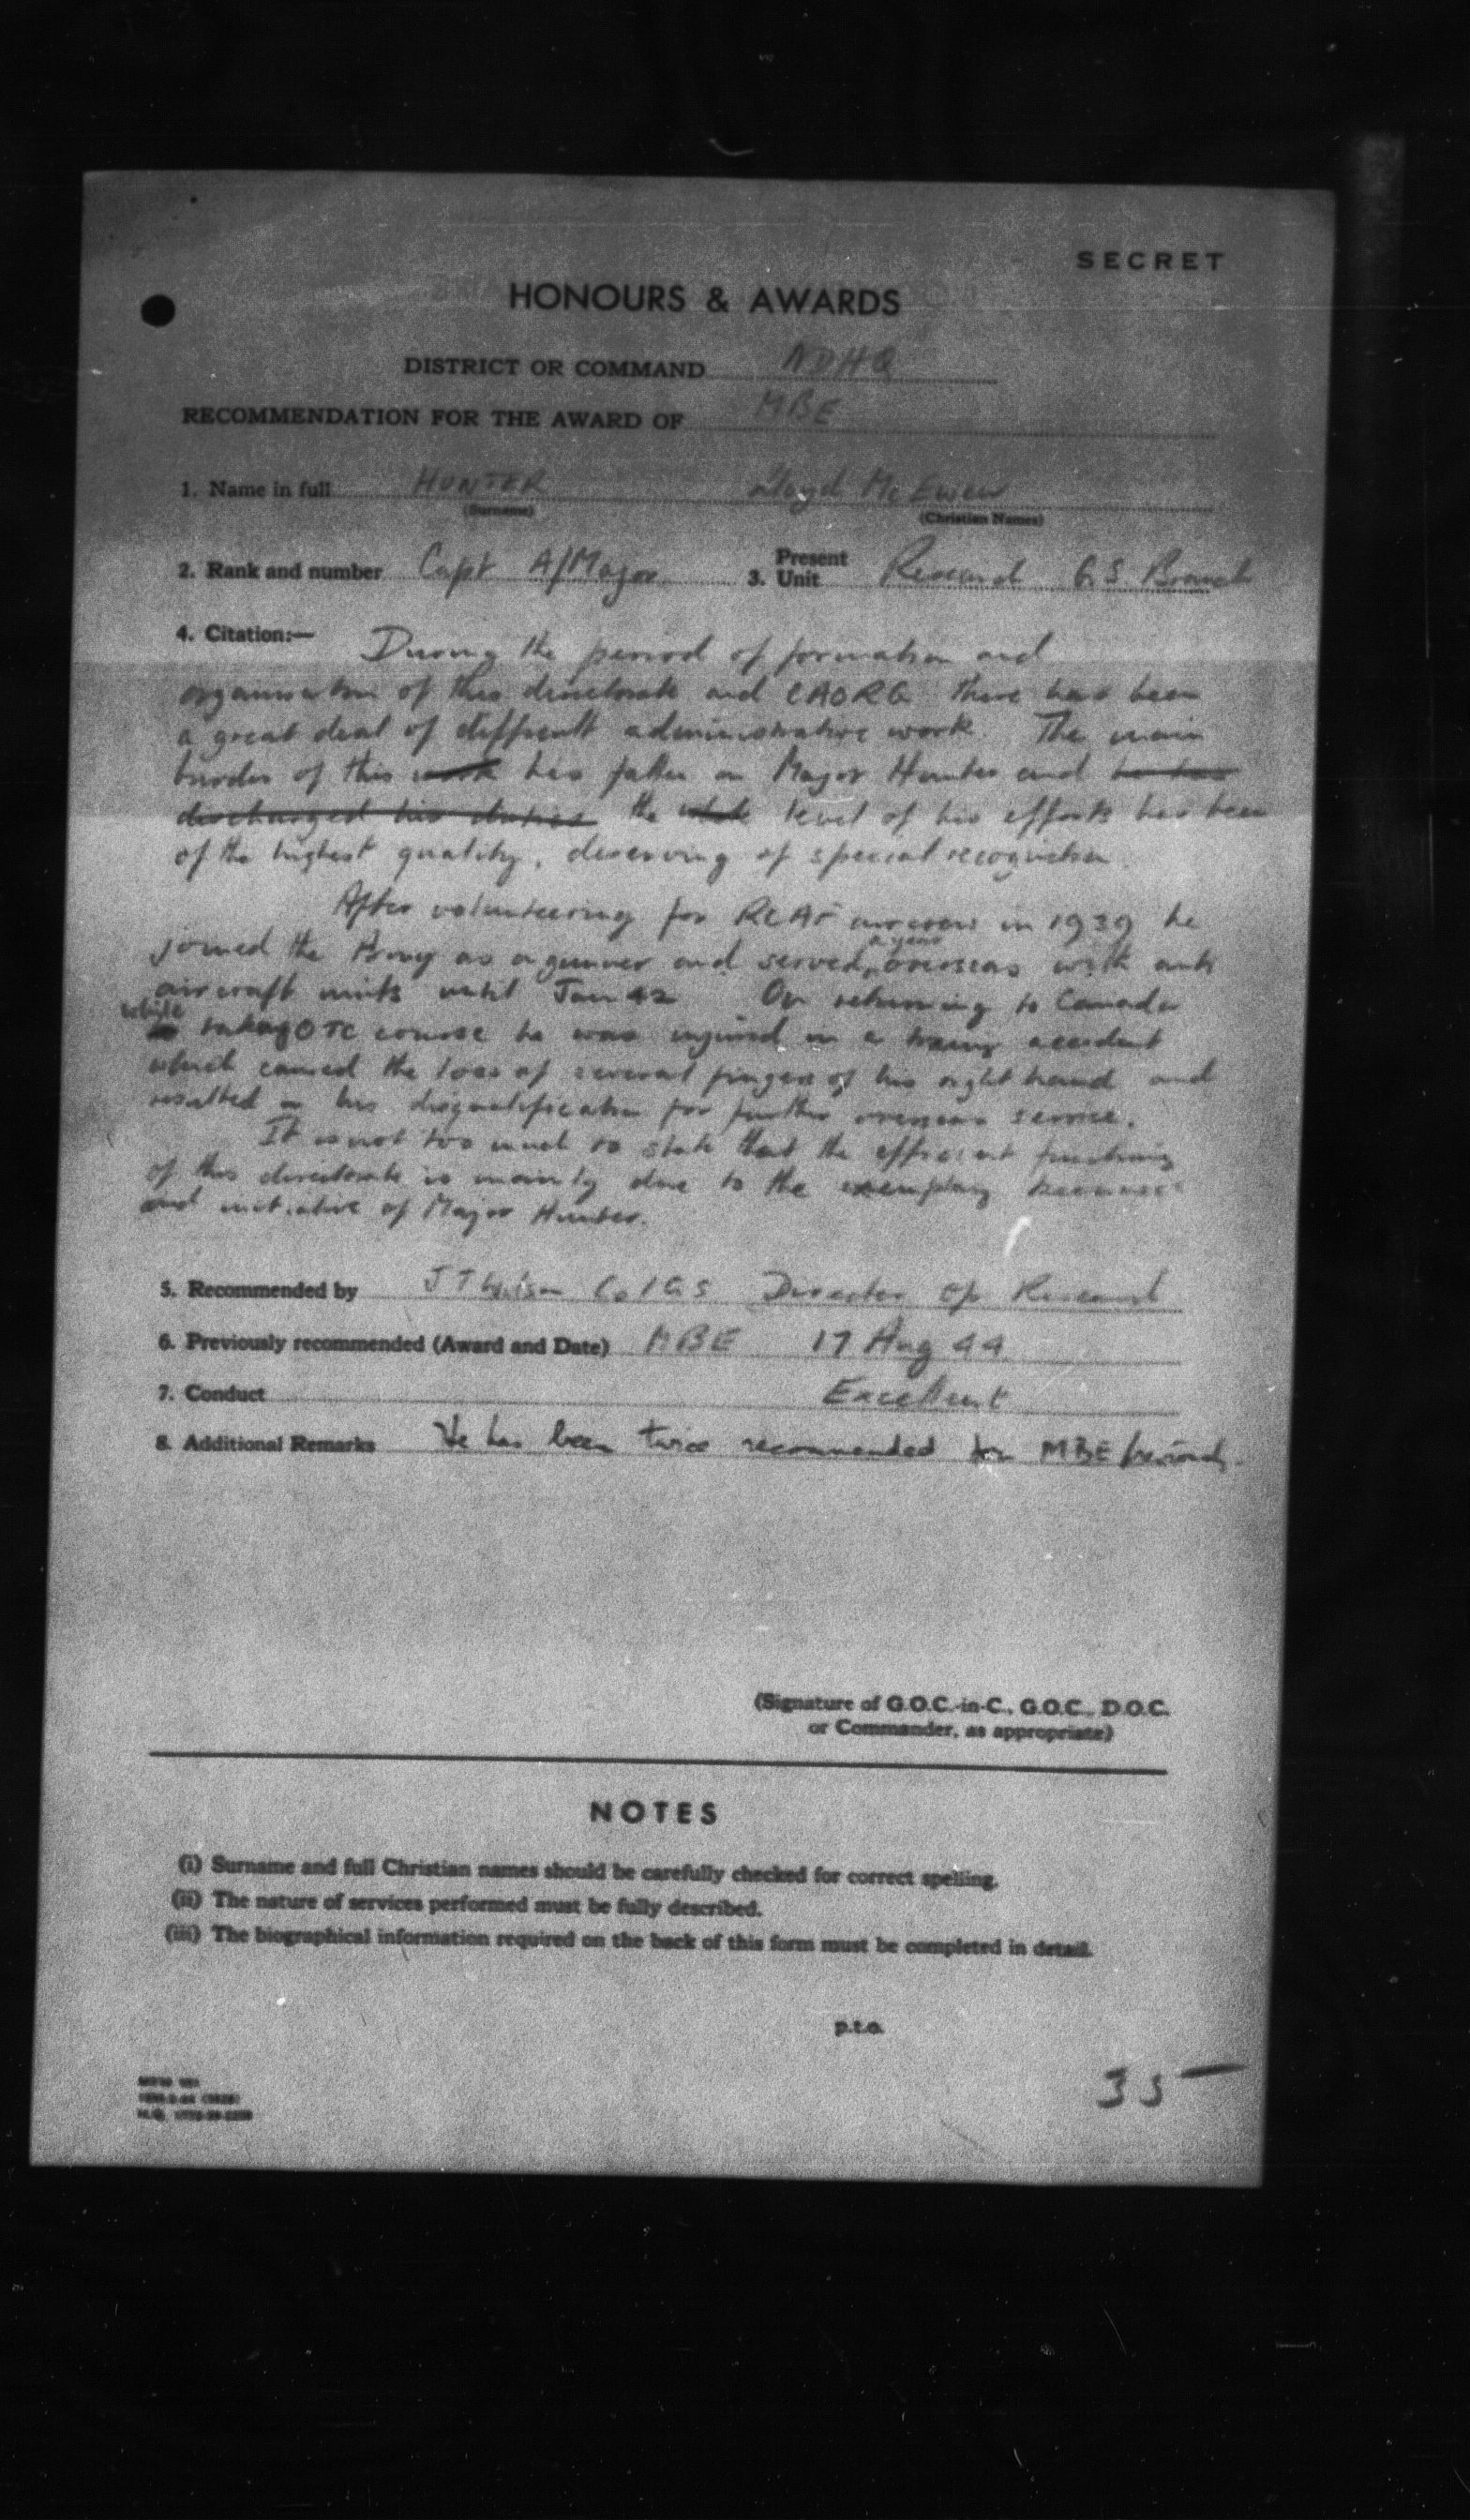 SECRET
HONOURS & AWARDS
DISTRICT OR COMMAND NDHQ
RECOMMENDATION FOR THE AWARD OF MBE
1. Name in full HUNTER Lloyd McEwen
(Surname) (Christian Names)
2. Rank and number Capt A/Major 3. Present Unit Research GS Branch
4. Citation:— During the period of formation and
organization of this directorate and CAORG there has been
a great deal of difficult administrative work. The main
burden of this work has fallen on Major Hunter and he has
discharged his duties the whole level of his efforts has been
of the highest quality, deserving of special recognition.
After volunteering for RCAF aircrew in 1939 he
joined the Army as a gunner and served a year overseas with anti
aircraft units until Jan 42 On returning to Canada
while taking OTC course he was injured in a training accident
which caused the loss of several fingers of his right hand and
resulted in his disqualification for further overseas service.
It is not too much to state that the efficient functioning
of this directorate is mainly due to the exemplary
and initiative of Major Hunter.
5. Recommended by J T Wilson Col GS Director Op Research
6. Previously recommended (Award and Date) MBE 17 Aug 44
7. Conduct Excellent
8. Additional Remarks He has been twice recommended for MBE previously.
(Signature of G.O.C.-in-C., G.O.C., D.O.C.
or Commander, as appropriate)
NOTES
(i) Surname and full Christian names should be carefully checked for correct spelling.
(ii) The nature of services performed must be fully described.
(iii) The biographical information required on the back of this form must be completed in detail.
p.t.o.
35